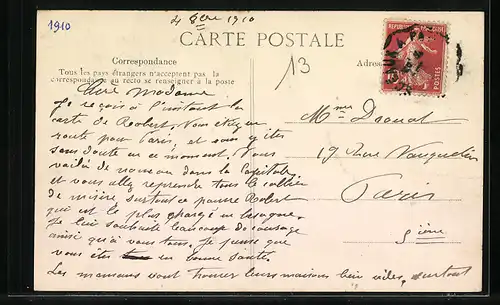 1910
4 8bre 1910
CARTE POSTALE
13
Correspondance
Tous les pays étrangers n'acceptent pas la
correspondance au recto se renseigner à la poste
Adres
Chère Madame
Je reçois à l'instant la
carte de Robert. Vous étiez en
route pour Paris, et vous y êtes
sans doute en ce moment. Vous
voilà de nouveau dans la Capitale
et vous allez reprendre tous le collier
de misère surtout ce pauvre Robert
qui est le plus chargé en besogne.
Je lui souhaite beaucoup de courage
ainsi qu'à vous tous. Je pense que
vous êtes en bonne santé.
Les mamans vont trouver leurs maisons bien vides, surtout
Mme Drouat
19 Rue Vauquelin
Paris
5ième